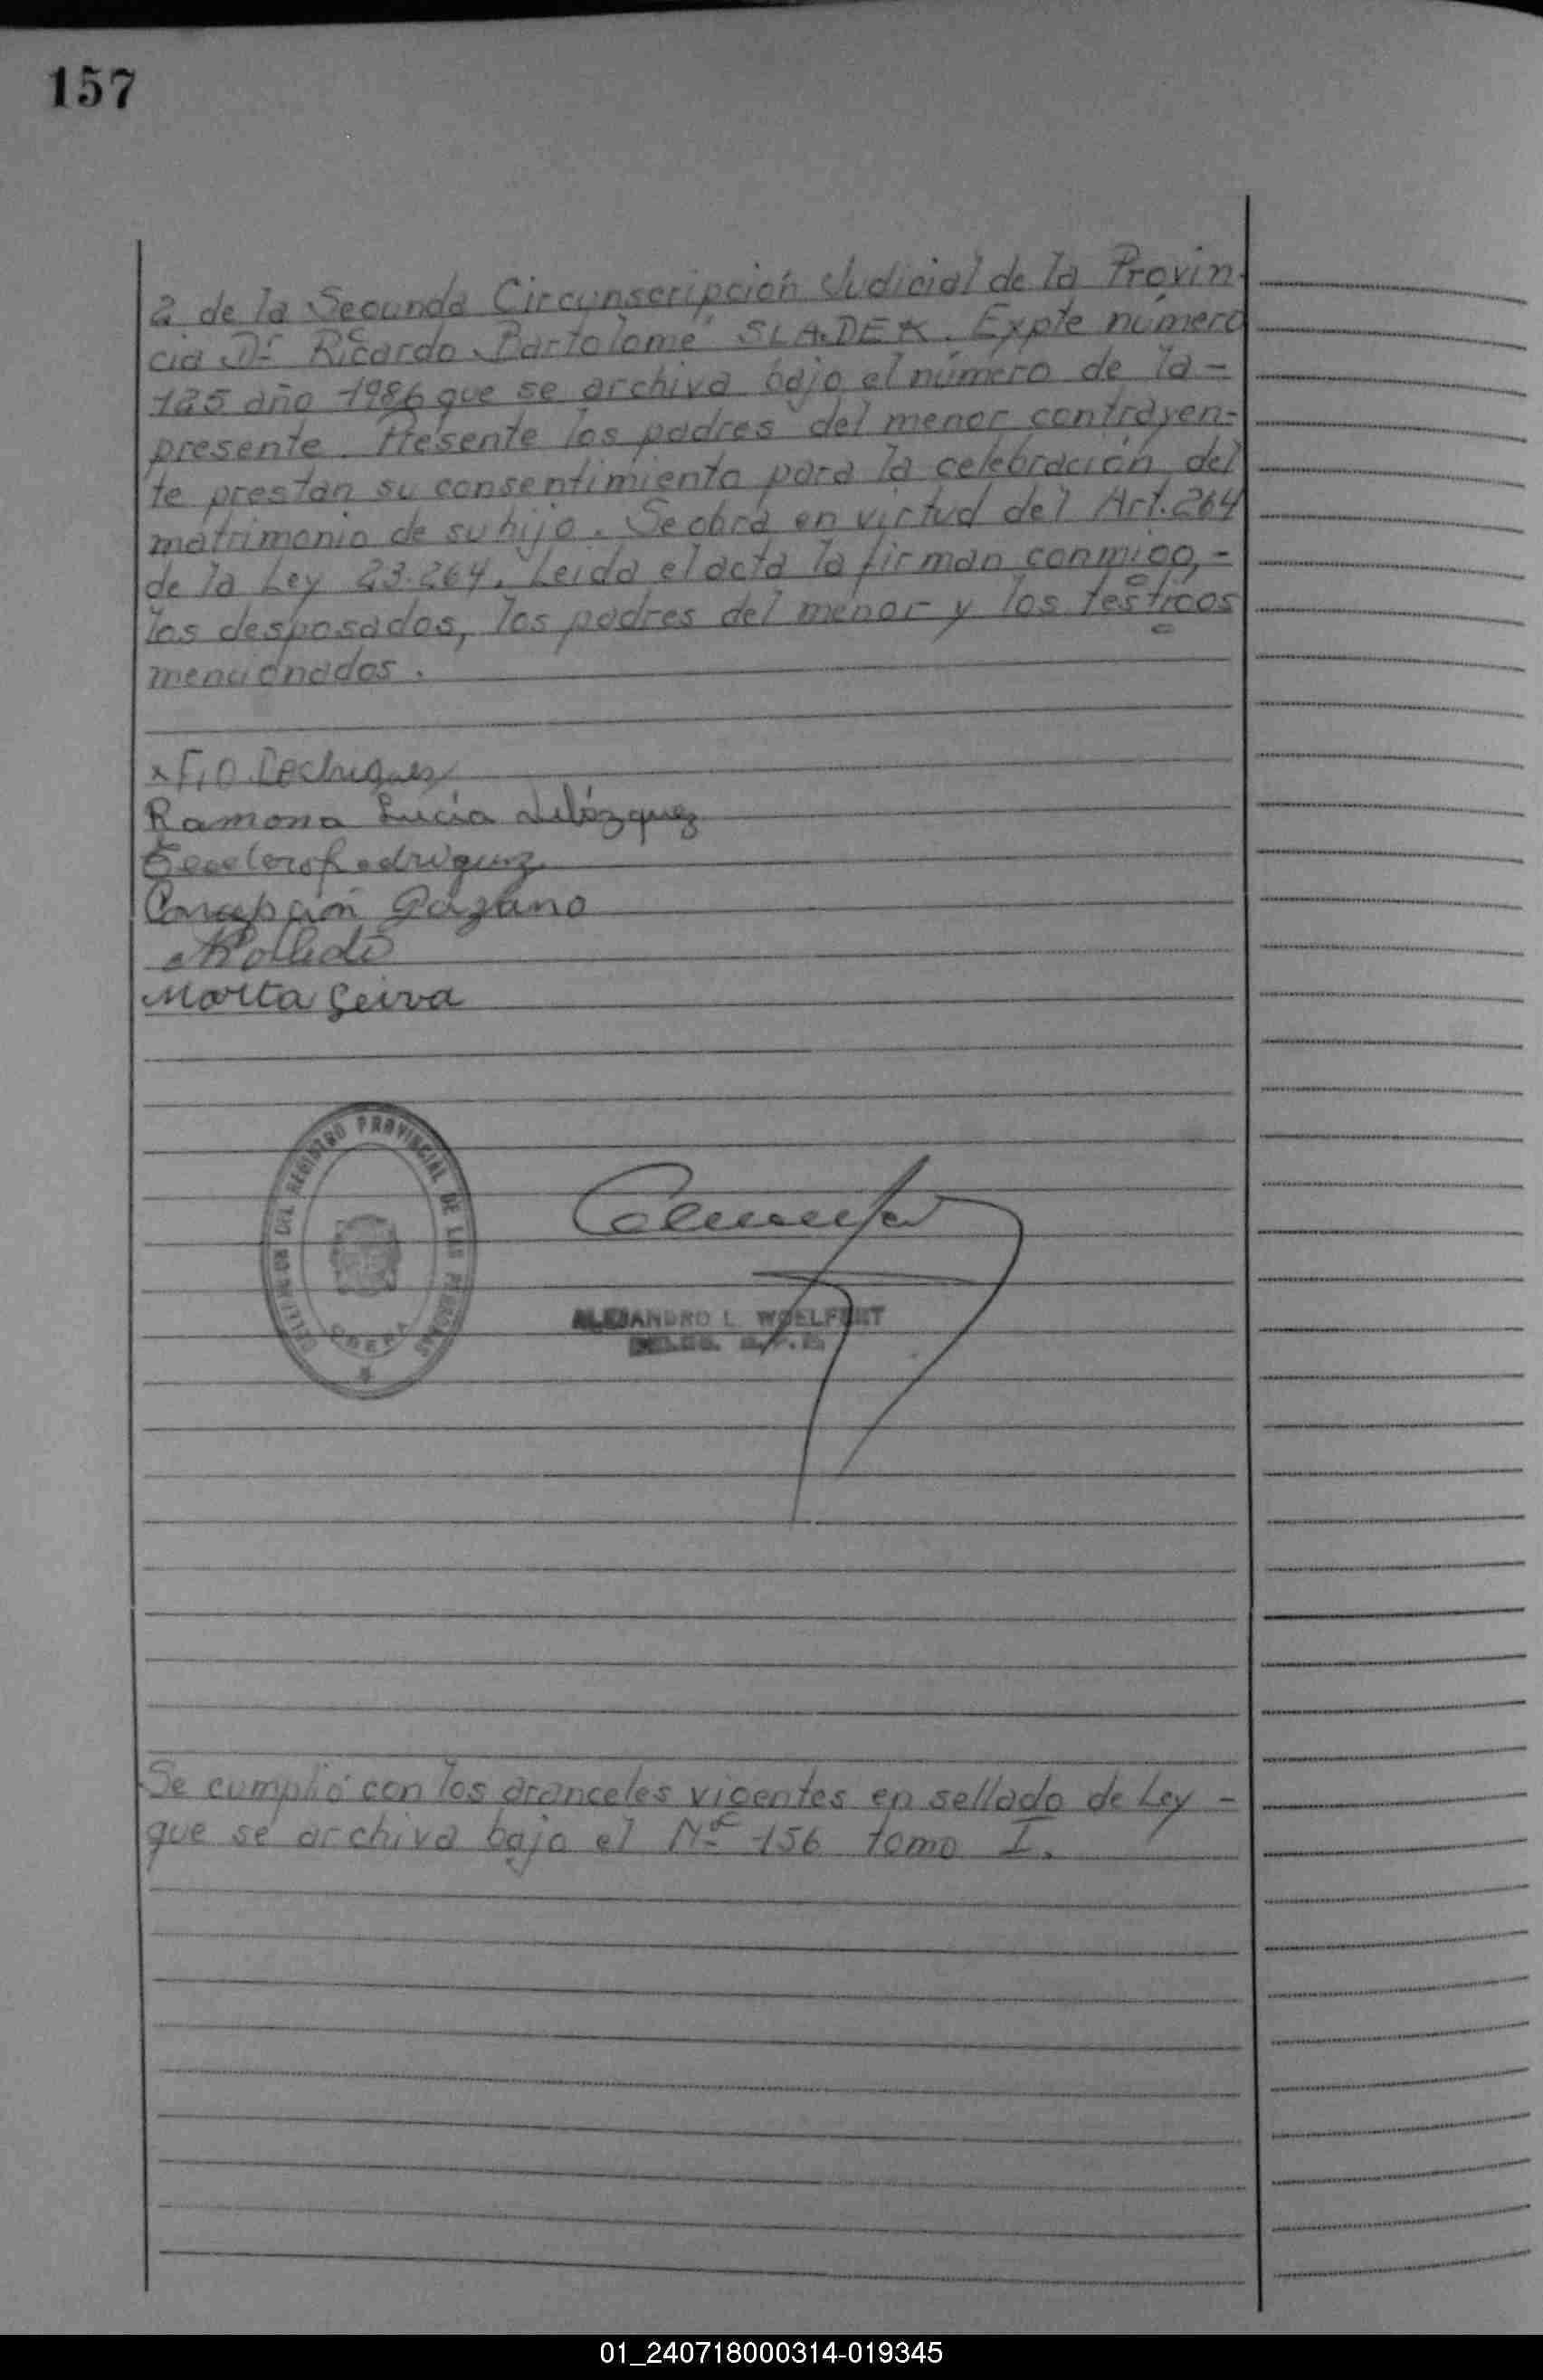 157
2 de la Segunda Circunscripción Judicial de la Provin-
cia Dr. Ricardo Bartolomé SLADEK. Expte número
125 año 1986 que se archiva bajo el número de la -
presente. Presente los padres del menor contrayen-
te prestan su consentimiento para la celebración del
matrimonio de su hijo. Se obra en virtud del Art. 264
de la Ley 23.264. Leida el acta la firman conmigo, -
los desposados, los padres del menor y los testigos
mencionados.
x
Ramona Lucia Velázquez
Rodriguez
Concepción Gazano
Marta Leiva
DELEGACION DEL REGISTRO PROVINCIAL DE LAS PERSONAS
OBERA
ALEJANDRO L. WOELFERT
DELEG. R. P. P.
Se cumplió con los aranceles vigentes en sellado de Ley -
que se archiva bajo el Nº 156 tomo I.
01_240718000314-019345